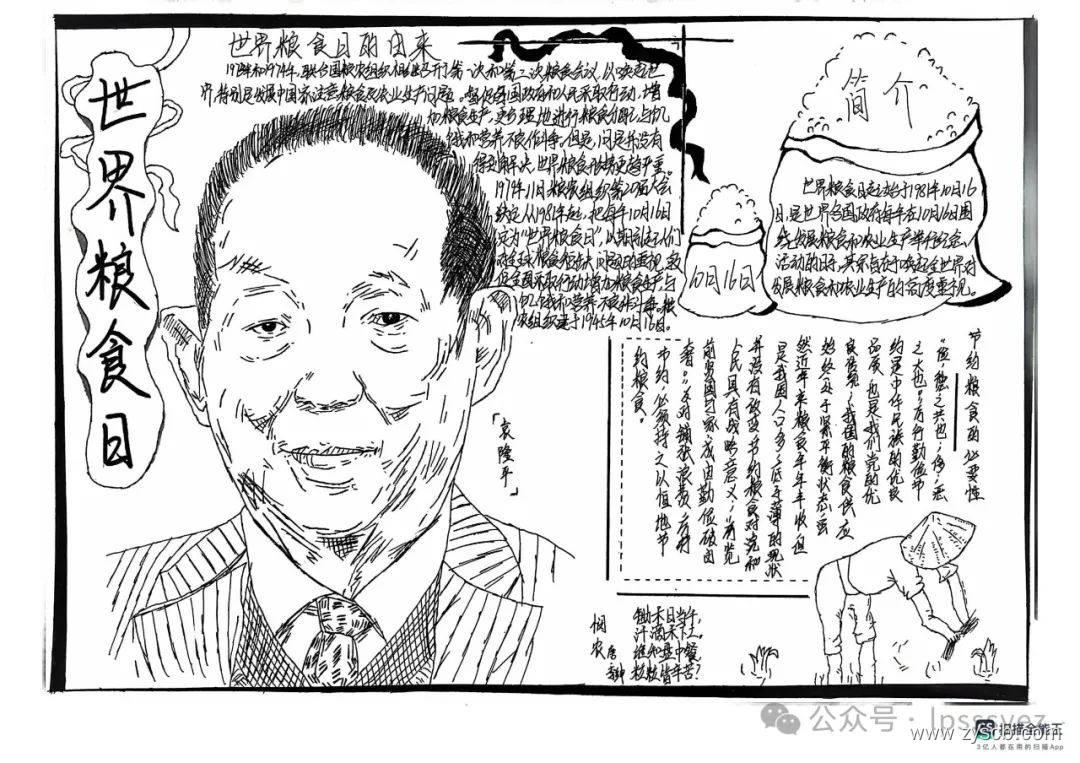 世界粮食日
世界粮食日的由来
1972年和1974年,联合国粮农组织相继召开了第一次和第二次粮食会议,以唤起世
界,特别是发展中国家注意粮食及农业生产问题。督促各国政府和人民采取行动,增
加粮食生产,更合理地进行粮食分配,与饥
饿和营养不良作斗争。但是,问题并没有
得到解决,世界粮食形势更趋严重。
1979年11月粮农组织第20届大会
决定从1981年起,把每年10月16日
定为“世界粮食日”,以期引起人们
对全球粮食短缺问题的重视,敦
促全国采取行动增加粮食生产,与
饥饿和营养不良作斗争。粮
农组织建于1945年10月16日。
「袁隆平」
10月16日
简介
世界粮食日起始于1981年10月16
日,是世界各国政府每年在10月16日围
绕发展粮食和农业生产举行纪念
活动的日子,其宗旨在于唤起全世界对
发展粮食和农业生产的高度重视。
节约粮食的必要性
“俭,德之共也;侈,恶
之大也。”厉行勤俭节
约是中华民族的优良
品质,也是我们党的优
良传统;我国的粮食供应
始终处于紧平衡状态,虽
然近年来粮食年年丰收,但
是我国人口多、底子薄的现状
并没有改变,节约粮食对党和
人民具有战略意义;“历览
前贤国与家,成由勤俭破由
奢。”反对铺张浪费,厉行
节约,必须持之以恒地节
约粮食。
悯农
唐 李绅
锄禾日当午,
汗滴禾下土。
谁知盘中餐,
粒粒皆辛苦?
公众号·lpsssyez
www.zyscb.com
扫描全能王
3亿人都在用的扫描App